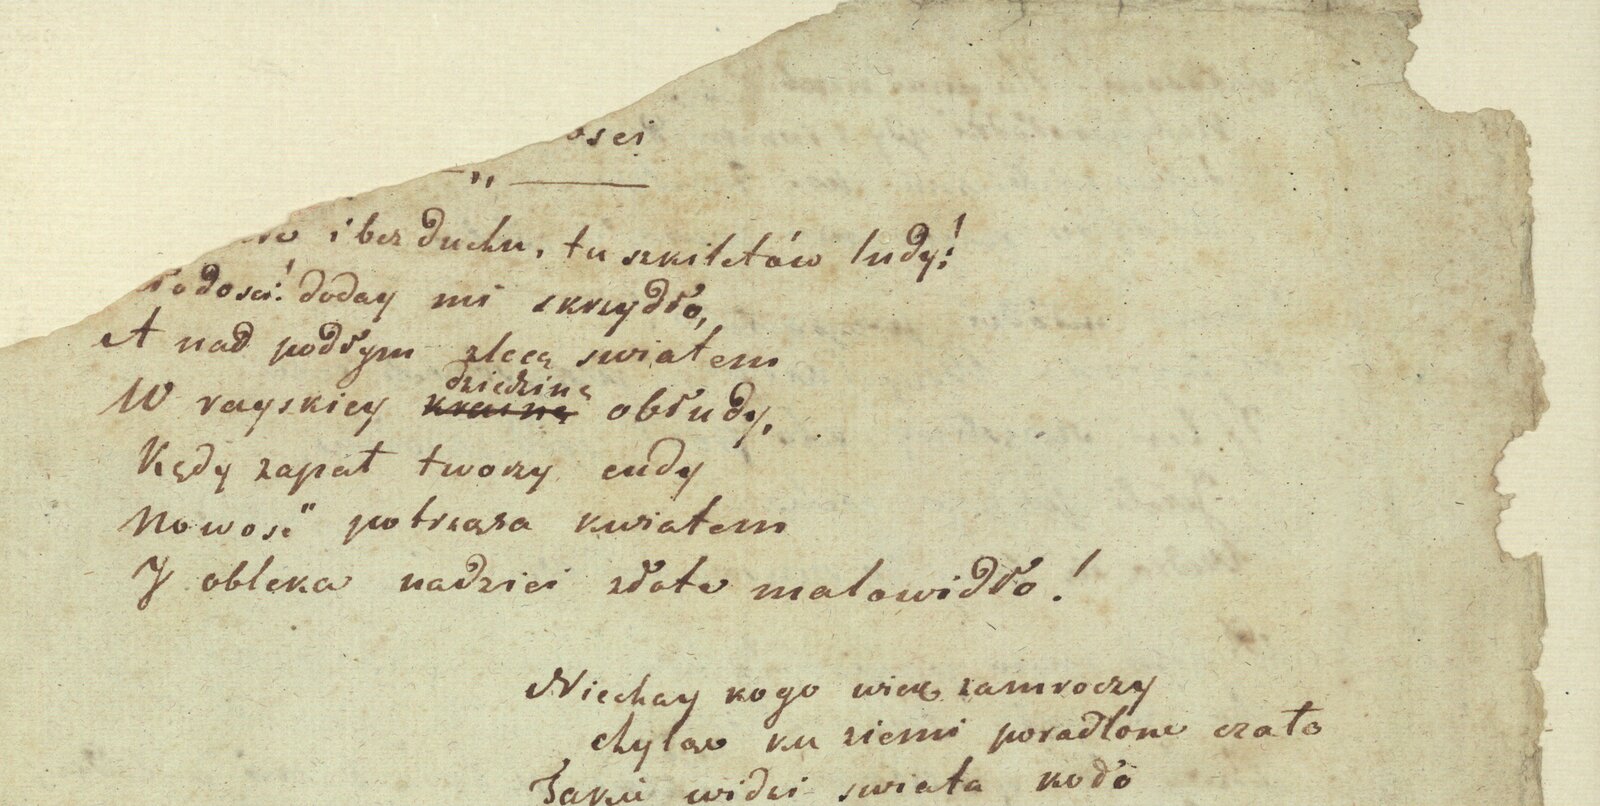 ości
i bez duchu, tu szkiletów ludy!
łodości! doday mi skrzydło,
A nad podłym zlecę swiatem
W rayskiey krainę dziedzinę obłudy,
Kędy zapał tworzy cudy
Nowość potrząsa kwiatem
I obleka nadziei złote malowidło!
Niechay kogo wiek zamroczy
chyląc ku ziemi poradlone czoło
Takie widzi swiata koło